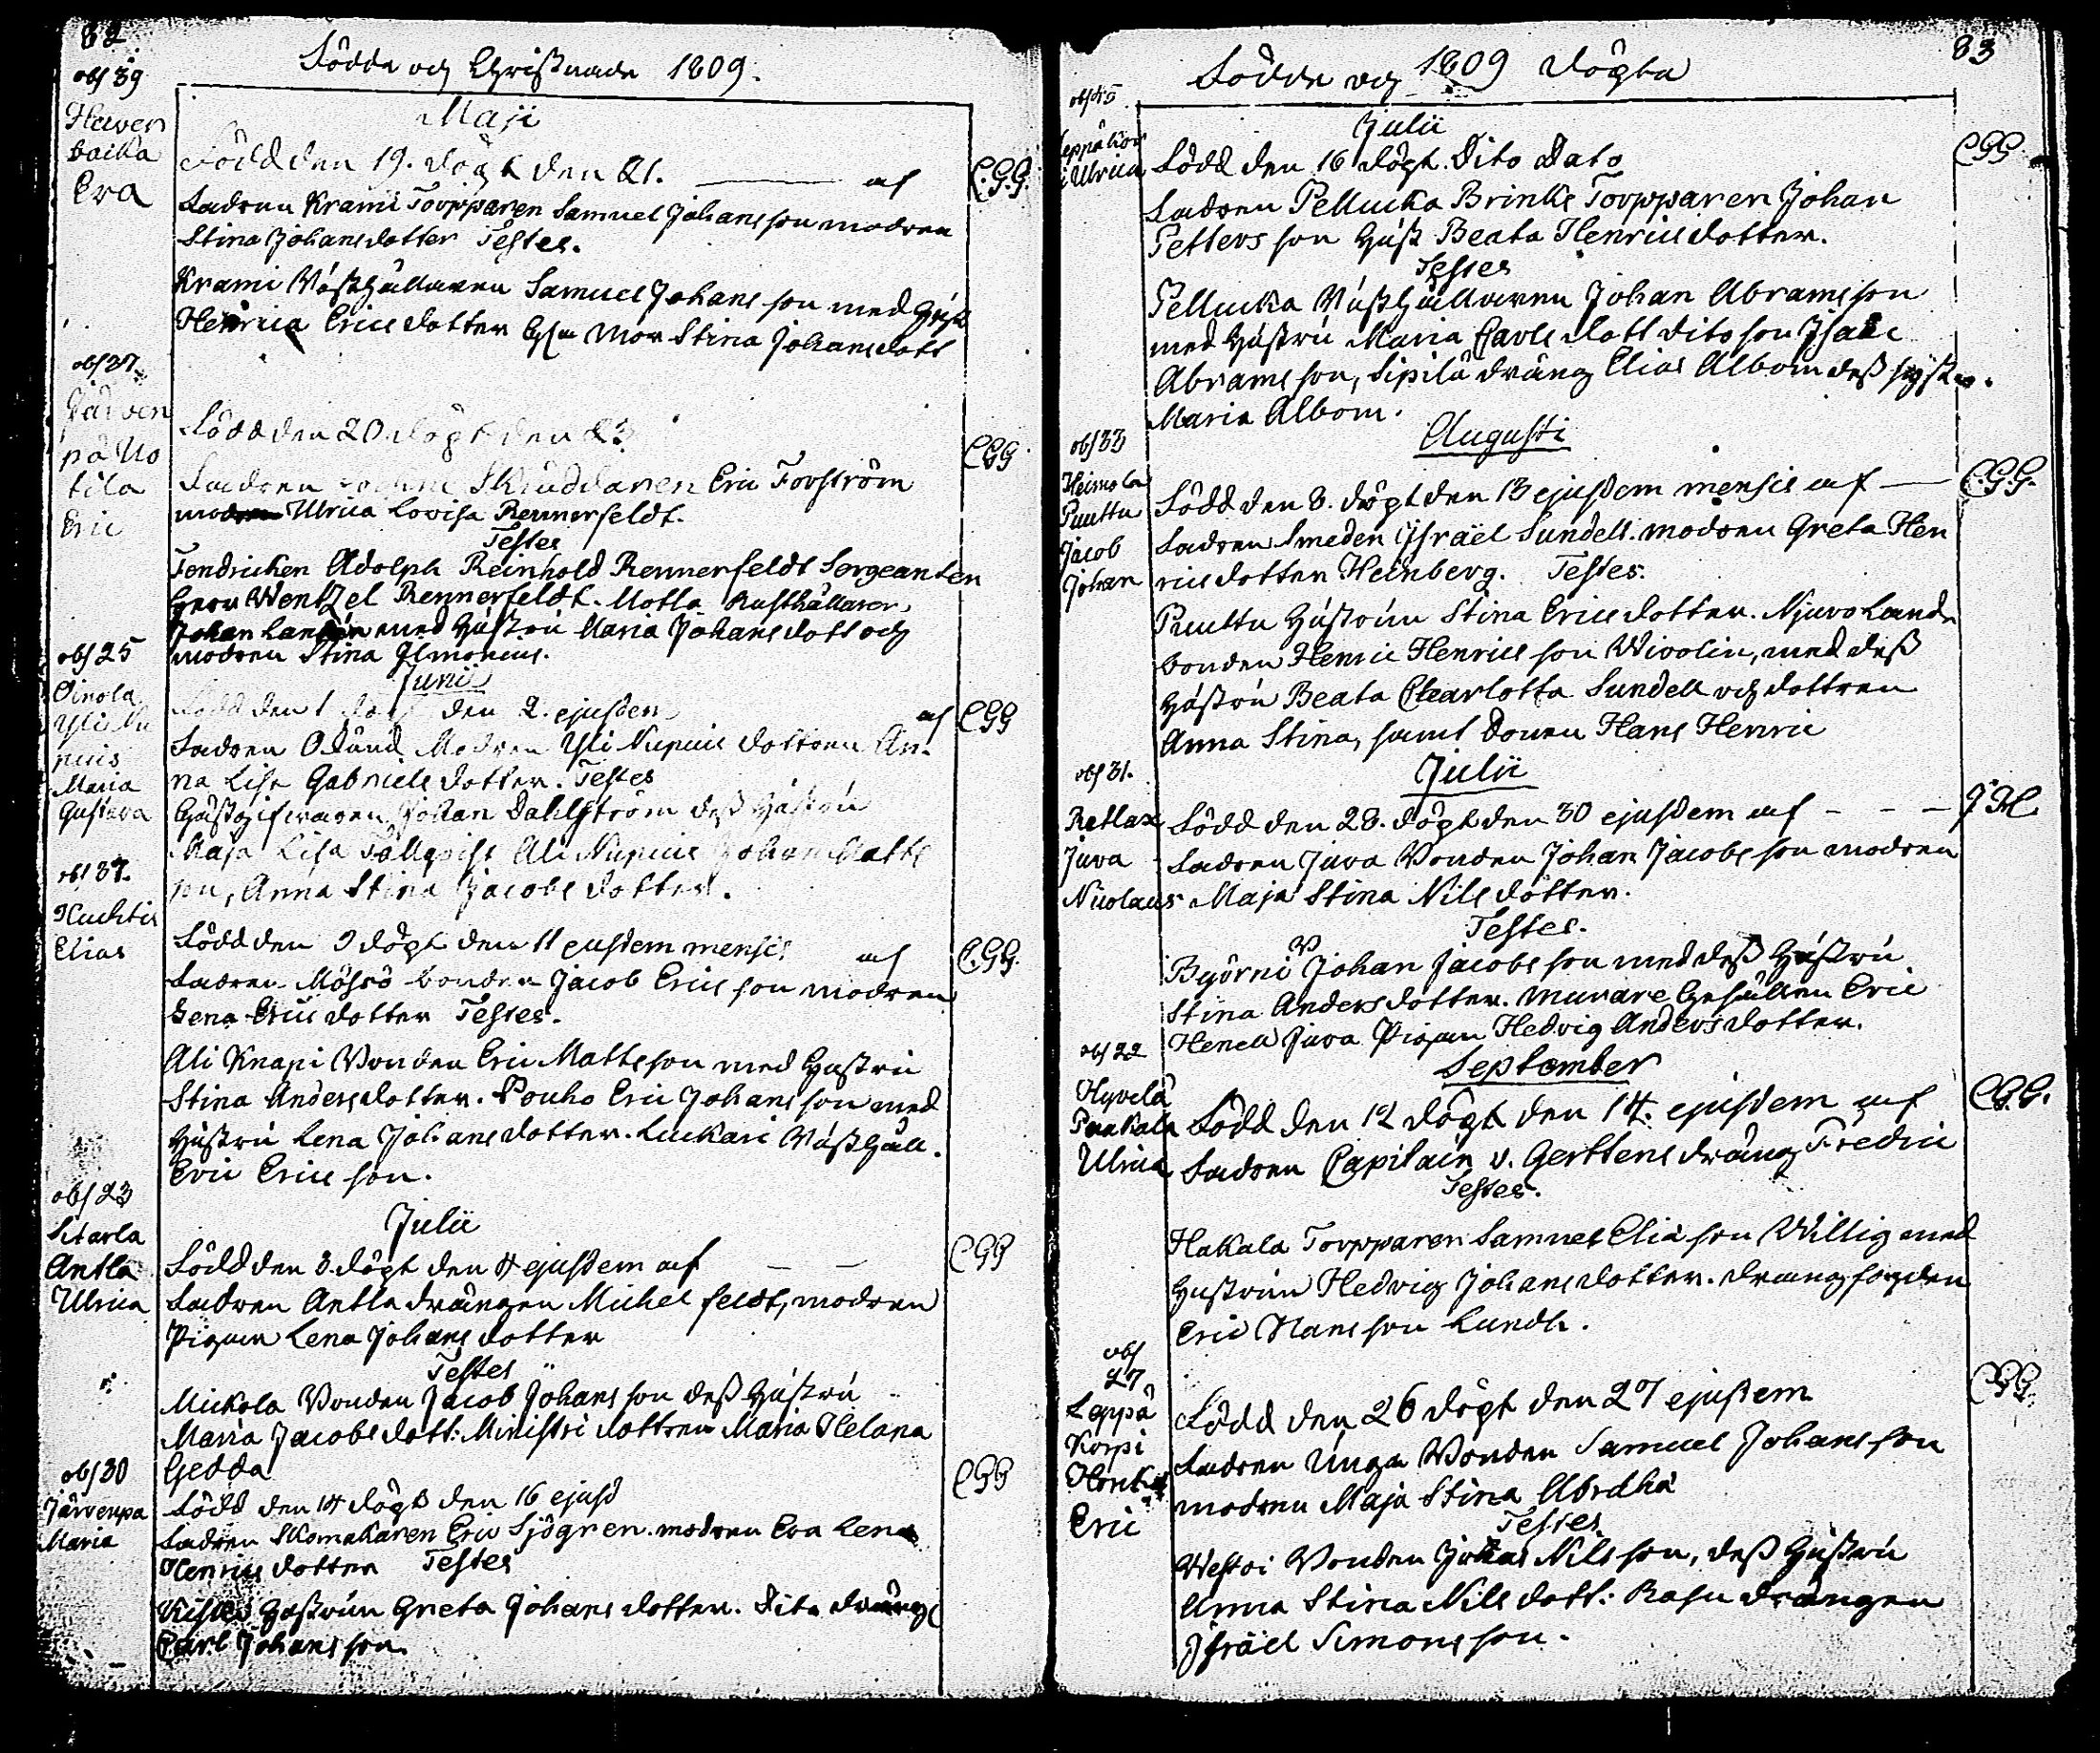 82
Födde och Christnade 1809.
obs 39
Maji
Eva
Född den 19. döpt den 21. af
C.G.G.
Fadren Krami Torpparen Samuel Johansson modren
Stina Johansdotter Testes.
Krami Råsthållaren Samuel Johansson med hust
Henrica Ericsdotter Mor Stina Johansdott
obs 27
på
Eric
Född den 20 döpt den 23
CGG
Fadren Skräddaren Eric Forström
modren Ulrica Lovisa Rennerfeldt.
Testes
Fendricken Adolph Reinhold Rennerfeldt Sergeanten
Herr Wentzel Rennerfeldt. Motla Rusthållaren
Johan med Hustru Maria Johansdott och
modren Stina
obs 25
Oinola
Maria
Gustava
Junii
Född den 1 döpt den 2. ejusdem af
CGG
Fadren Okänd Modren Yli Nupuis dottren An-
na Lisa Gabrielsdotter. Testes
Gästgifvaren Johan Dahlström dess Hustru
Maja Lisa Tallqvist Ali Nupuis Johan Matts
son, Anna Stina Jacobsdotter.
obs 37.
Huchtis
Elias
Född den 9 döpt den 11 eusdem mensis af
C.GG.
Fadren bonden Jacob Ericsson modren
Lena Ericsdotter Testes.
Ali Knapi Bonden Eric Mattsson med Hustru
Stina Andersdotter. Pouho Eric Johansson med
Hustru Lena Johansdotter. Luckari Rusthåll.
Eric Ericsson.
obs 23
Sitarla
Antla
Ulrica
Julii
Född den 3. döpt den 4 ejusdem af
CGG
Fadren Antla drängen Michel feldt, modren
Pigan Lena Johansdotter
Testes
Mickola Bonden Jacob Johansson dess Hustru
Maria Jacobsdott: Ministri dottren Maria Helana
Gedda
obs 30
Järvenpä
Maria
Född den 14 döpt den 16 ejusd
CGG
Fadren Skomakaren Eric Sjögren. modren Eva Lena
Henricsdotter Testes
Hustrun Greta Johansdotter. Dito dräng
Carl Johansson.
83
Födde och 1809 döpta
obs 45
Leppäkor
Ulrica
Julii
Född den 16 döpt. Dito Dato
CGG
Fadren Pellucka Brinks Torpparen Johan
Pettersson Hust Beata Henricsdotter.
Testes
Pellucka Rusthållaren Johan Abramsson
med Hustru Maria Carlsdott dito son Isaac
Abramsson, Sipilä dräng Elias Albom dess syster.
Maria Albom.
obs 33
Heimola
Puuttu
Jacob
Johan
Augusti
Född den 8. döpt den 13 ejusdem mensis af
C.G.G.
Fadren Smeden Israël Sundell. modren Greta Hen
ricsdotter Heinberg. Testes.
Puuttu Hustrun Stina Ericsdotter. Njuvo Land-
bonden Henric Henricsson Wivolin, med dess
Hustru Beata Charlotta Sundell och dottren
Anna Stina, samt Sonen Hans Henric
obs 31.
Retlax
Juva
Nicolaus
Julii
Född den 28. döpt den 30 ejusdem af
Fadren Juva Bonden Johan Jacobsson modren
Maja Stina Nilsdotter.
Testes.
Byörni Johan Jacobsson med dess Hustru
Stina Andersdotter. Murare Gesällen Eric
Henell Juva Pigan Hedvig Andersdotter.
obs 22
Hyvelä
Paakala
Ulrica
September
Född den 12 döpt den 14. ejusdem af
C.G.G.
Fadren Capitain v. Gerttens dräng Fredric
Testes.
Hakala Torpparen Samuel Eliasson Willig med
Hustrun Hedvig Johansdotter. drängfogden
Eric Hansson Lundh.
obs
27
Leppä
Korpi
Honka
Eric
Född den 26 döpt den 27 ejusdem
CGG
Fadren Unga Bonden Samuel Johansson
modren Maja Stina Abraha
Testes
Westoi Bonden Johan Nilsson, dess Hustru
Anna Stina Nilsdott: Rasu drängen
Israël Simonsson.